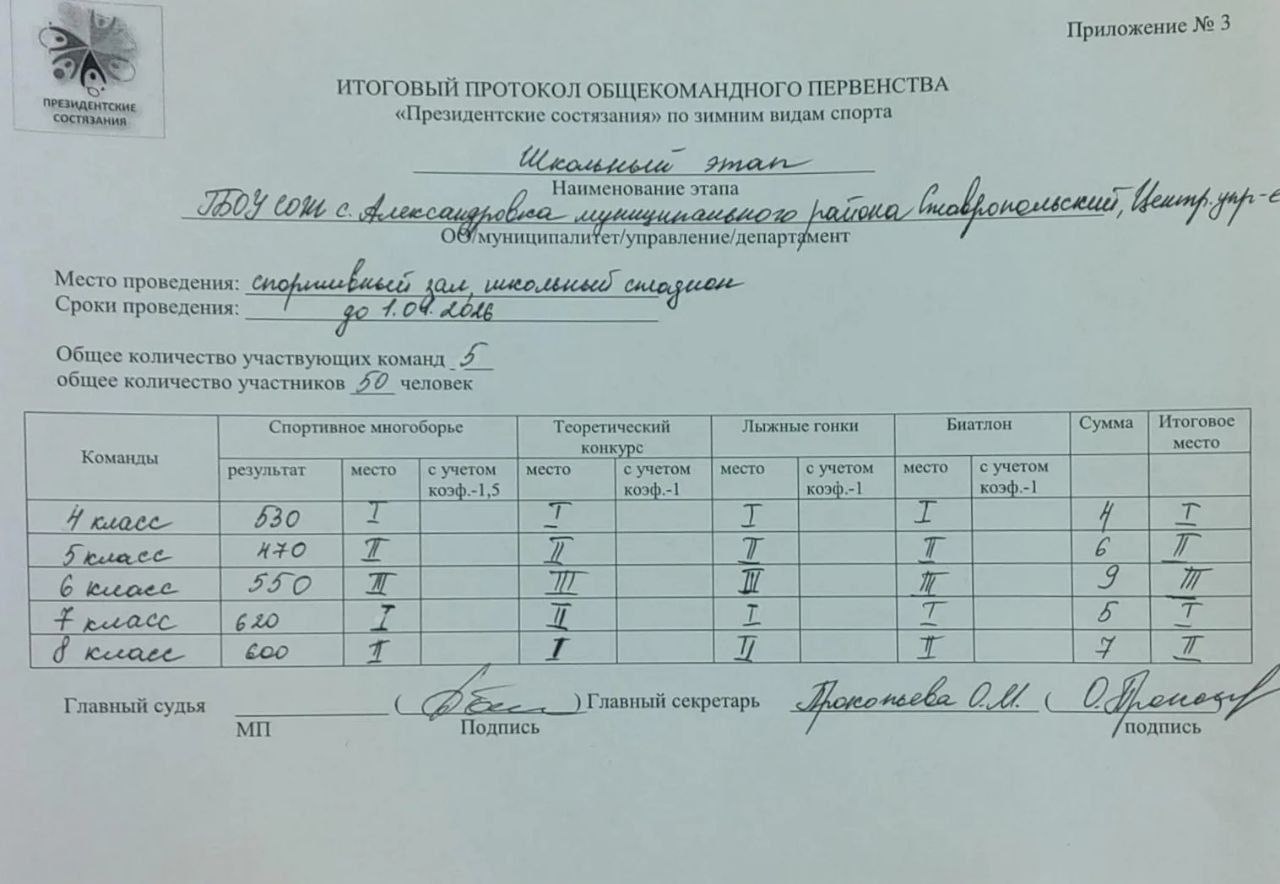 Приложение № 3
ПРЕЗИДЕНТСКИЕ
СОСТЯЗАНИЯ
ИТОГОВЫЙ ПРОТОКОЛ ОБЩЕКОМАНДНОГО ПЕРВЕНСТВА
«Президентские состязания» по зимним видам спорта
Школьный этап
Наименование этапа
ГБОУ СОШ с. Александровка муниципального района Ставропольский, Центр. упр-е
ОО/муниципалитет/управление/департамент
Место проведения: спортивный зал, школьный стадион
Сроки проведения: до 1.04.2026
Общее количество участвующих команд 5
общее количество участников 50 человек
Команды Спортивное многоборье Теоретический конкурс Лыжные гонки Биатлон Сумма Итоговое место
результат место с учетом коэф.-1,5 место с учетом коэф.-1 место с учетом коэф.-1 место с учетом коэф.-1
4 класс 530 I I I I 4 I
5 класс 470 II II II II 6 II
6 класс 550 III III III III 9 III
7 класс 620 I II I I 5 I
8 класс 600 II I II II 7 II
Главный судья ( ) Главный секретарь Прокопьева О.М. (
МП Подпись подпись